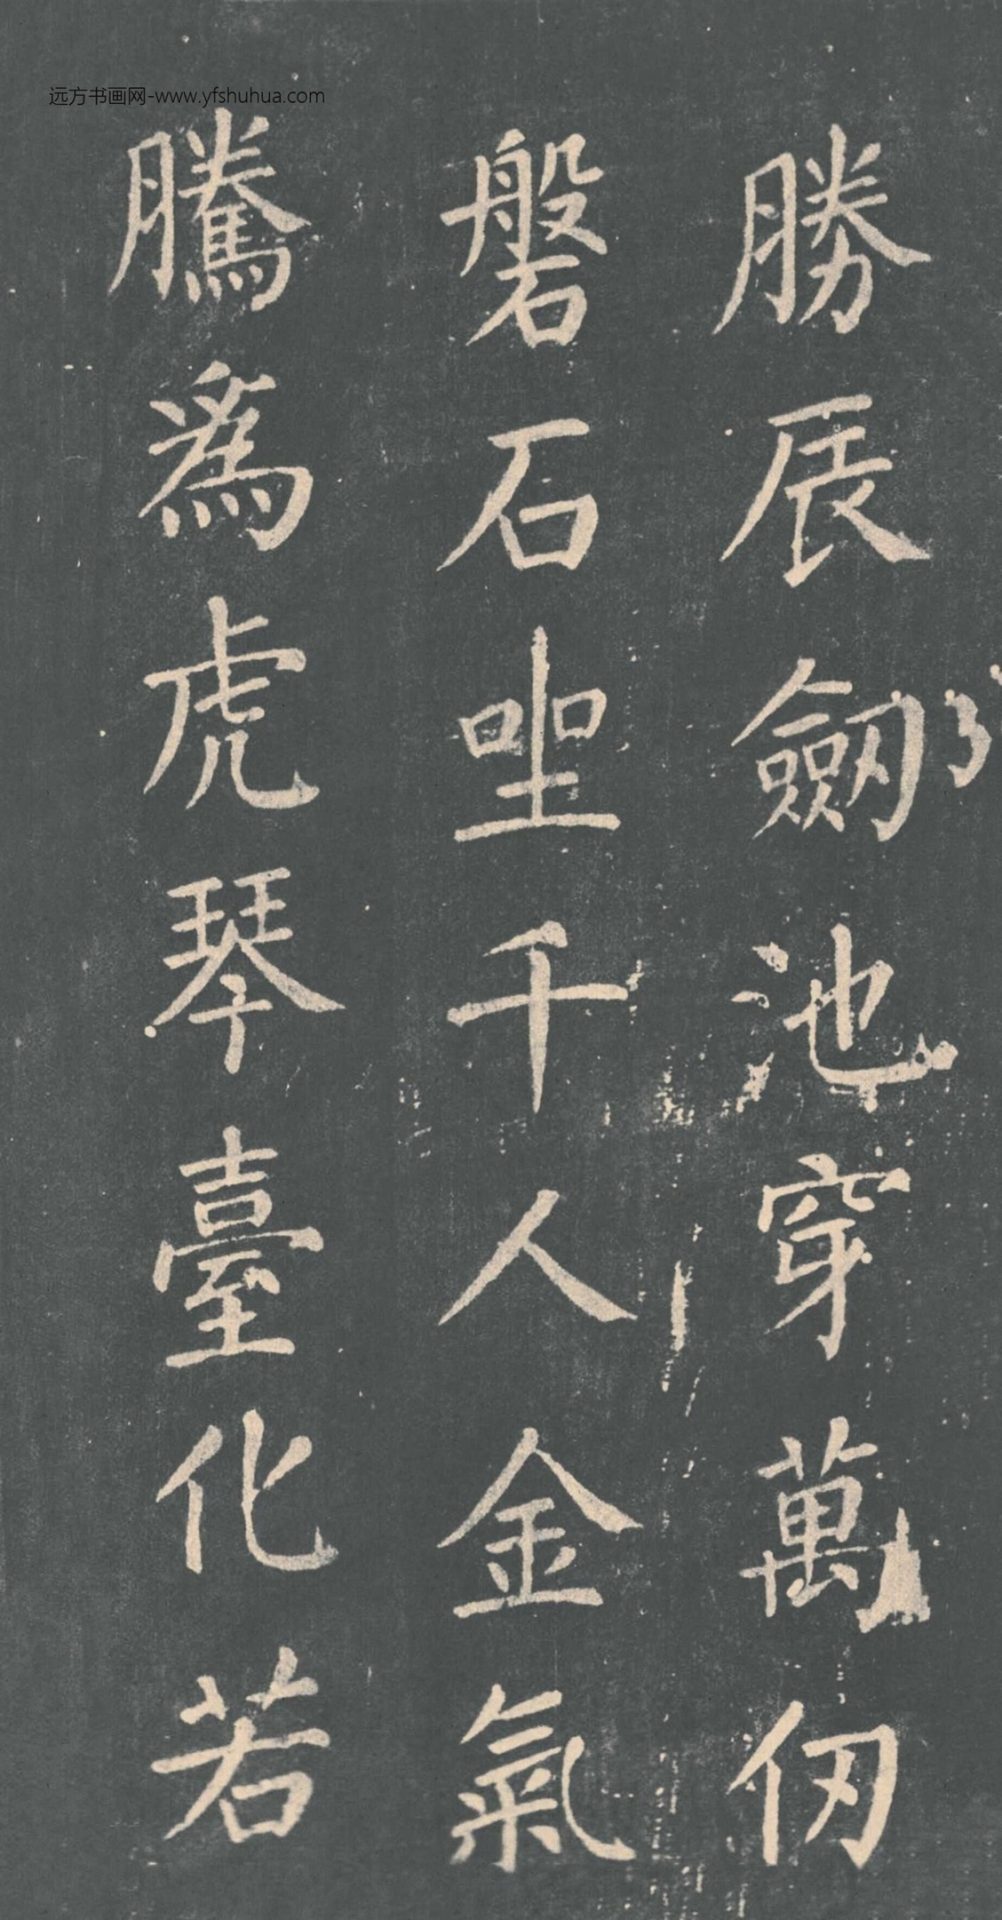 远方书画网-www.yfshuhua.com
勝辰劒池穿萬仞
磐石坐千人金氣
騰為虎琴臺化若